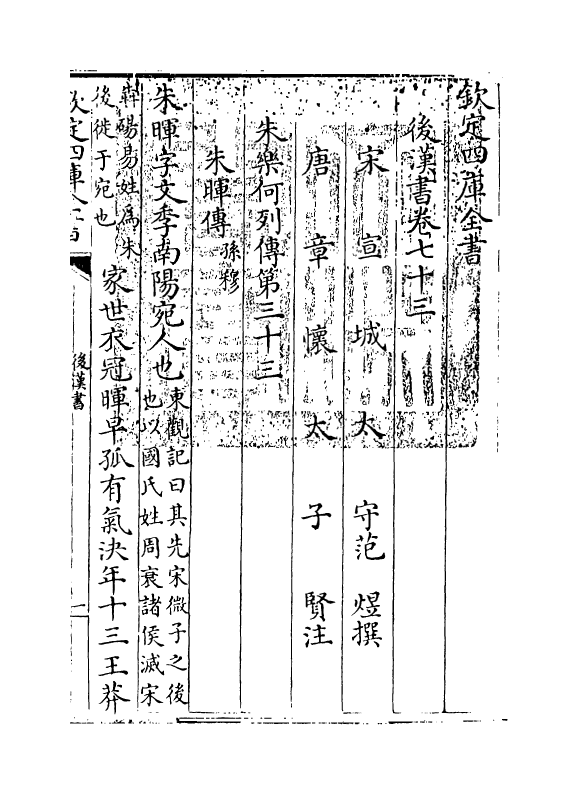 欽定四庫全書
後漢書卷七十三
宋宣城太守范煜撰
唐章懷太子賢注
朱樂何列傳第三十三
朱暉傳孫穆
朱暉字文季南陽宛人也東觀記曰其先宋微子之後
也以國氏姓周衰諸侯滅宋
犇碭易姓為朱
後徙于宛也
家世衣冠暉早孤有氣決年十三王莽
欽定四庫全書
後漢書
一